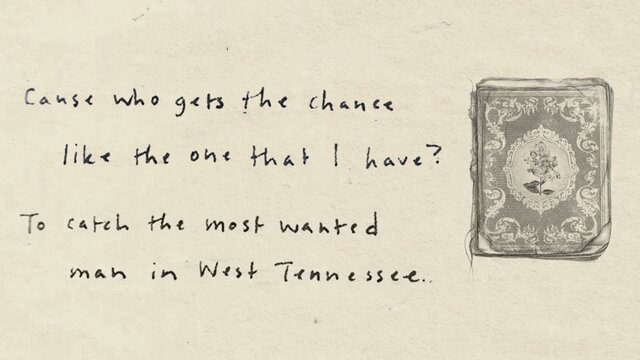 Cause who gets the chance
like the one that I have?
To catch the most wanted
man in West Tennessee..